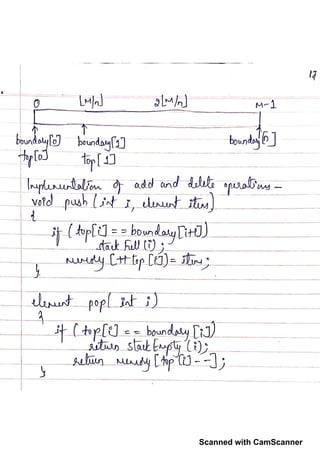 17
0 ⌊M/n⌋ 2⌊M/n⌋ M-1
boundary[0] boundary[1] boundary[n]
top[0] top[1]
Implementation of add and delete operations -
void push (int i, element item)
{
if (top[i] == boundary[i+1])
stack Full (i);
memory [++top[i]] = item;
}
element pop( int i)
{
if (top[i] == boundary [i])
return stack Empty (i);
return memory [top[i]--];
}
Scanned with CamScanner